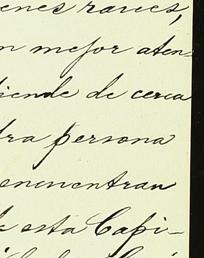 enes raices,
n mejor aten-
iende de cerca
dra persona
enenentran
esta Capi-